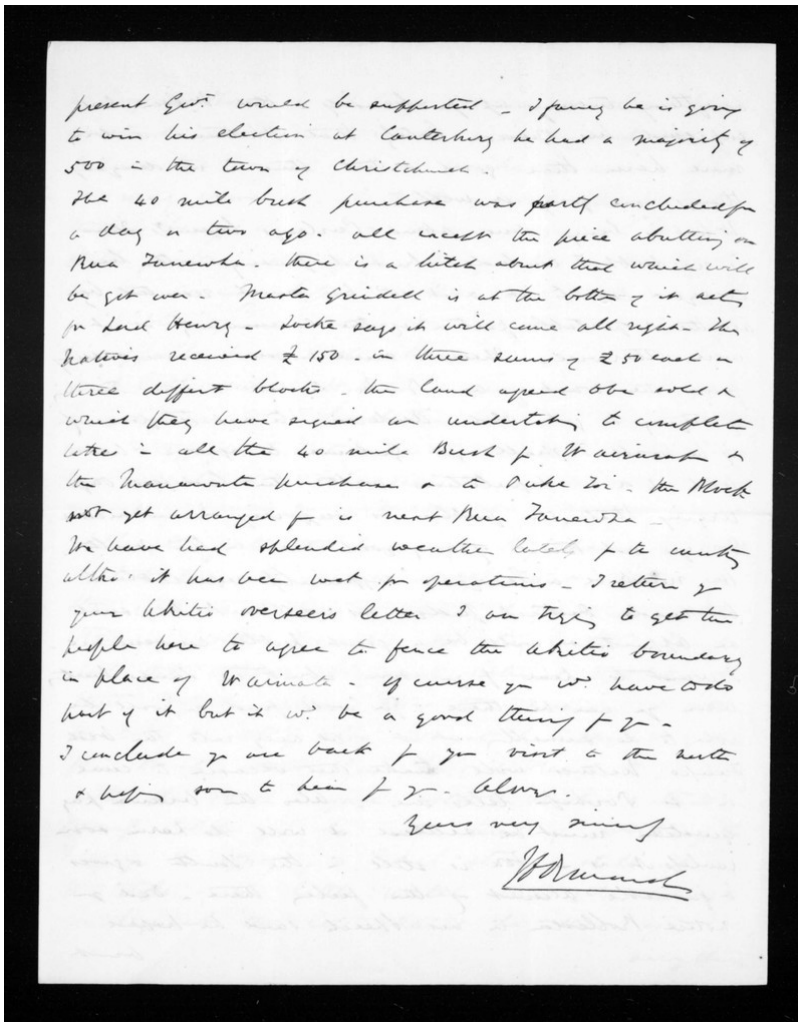 present Govt. would be supported - I fancy he is going
to win his election at Canterbury he had a majority of
500 in the town of Christchurch.
The 40 mile bush purchase was partly concluded for
a day or two ago. all except the piece abutting on
Rua Tanewha. there is a hitch about that which will
be got over. Master Grindell is at the bottom of it acting
for Lord Henry - Locke says it will come all right - The
Natives received £150 - in three sums of £50 each on
three different blocks - the land agreed to be sold &
which they have signed an undertaking to complete
takes in all the 40 mile Bush fm Wairarapa &
the Manawatu purchase & to Puke Toi - the Block
not yet arranged for is next Rua Tanewha -
We have had splendid weather lately for the country
altho' it has been wet for operations - I return you
your Akitio overseers letter I am trying to get the
people here to agree to fence the Akitio boundary
in place of Waimata - Of course you wd. have to do
part of it but it wd. be a good thing for you -
I conclude you are back fm your visit to the north
& hope soon to hear fm you.
Yours very sincerely
JD Ormond